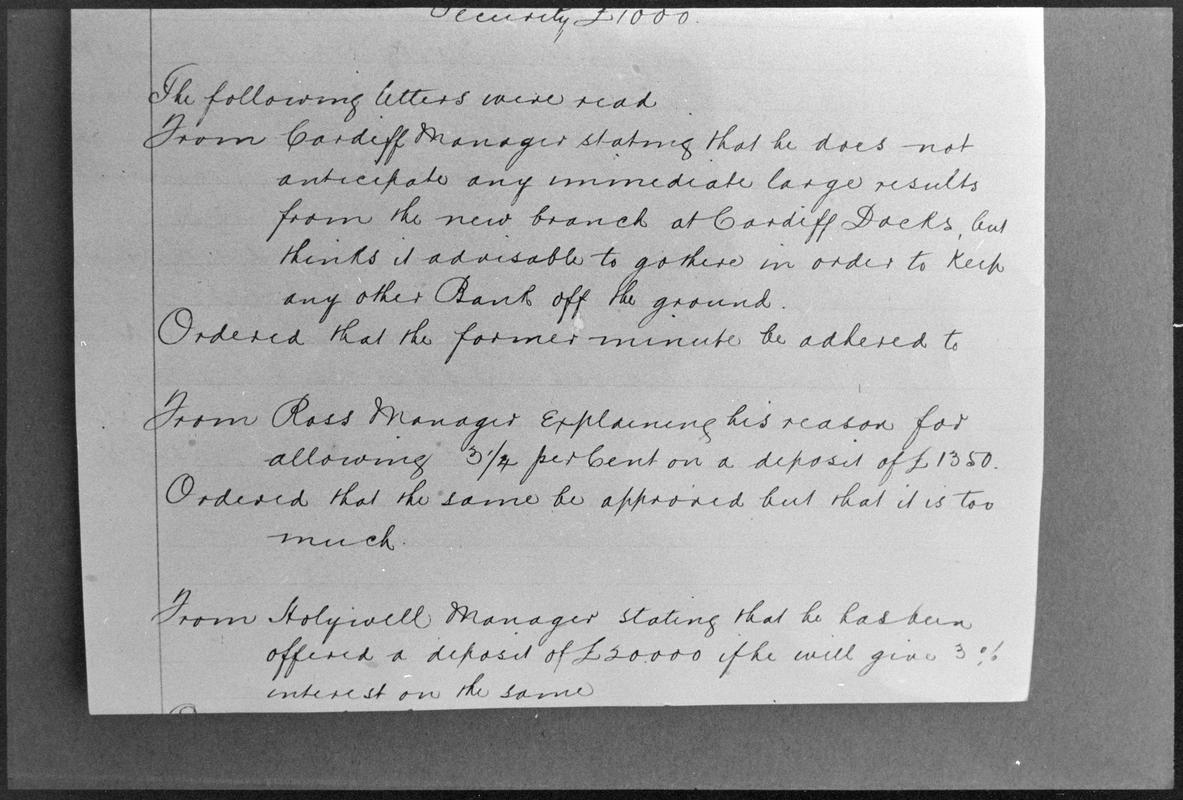 Security £1000.
The following letters were read
From Cardiff Manager stating that he does not
anticipate any immediate large results
from the new branch at Cardiff Docks, but
thinks it advisable to go there in order to keep
any other Bank off the ground.
Ordered that the former minute be adhered to
From Ross Manager explaining his reason for
allowing 3½ per Cent on a deposit of £1350.
Ordered that the same be approved but that it is too
much.
From Holywell Manager stating that he has been
offered a deposit of £20000 if he will give 3 %
interest on the same